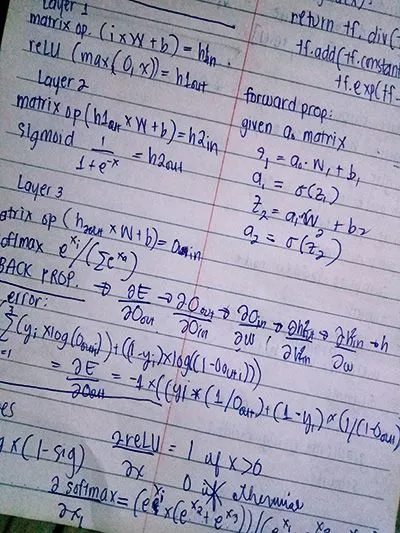 Layer 1
matrix op. (i × W + b) = h1in
reLU (max(0, x)) = h1out
Layer 2
matrix op (h1out × W + b) = h2in
Sigmoid 1/(1+e^-x) = h2out
Layer 3
(h2out × W + b) = Oin
e^xi / (Σe^xa)
BACK PROP. → ∂E/∂Oout → ∂Oout/∂Oin → ∂Oin/∂w
error:
Σ(yi × log(Oout)) + ((1-yi) × log(1-Oout)))
= ∂E/∂Oout = -1 × ((yi × (1/Oout) + (1-yi) × (1/(1-Oout)
× (1 - sig)
∂reLU/∂x = 1 if x>0
0 otherwise
∂ softmax/∂x1 = (e^x1 × (e^x2 + e^x3)) / (e^x1
return tf.div(
tf.add(tf.constant
tf.exp(tf.
forward prop:
given a0 matrix
z1 = a0 · W1 + b1
a1 = σ(z1)
z2 = a1 · W2 + b2
a2 = σ(z2)